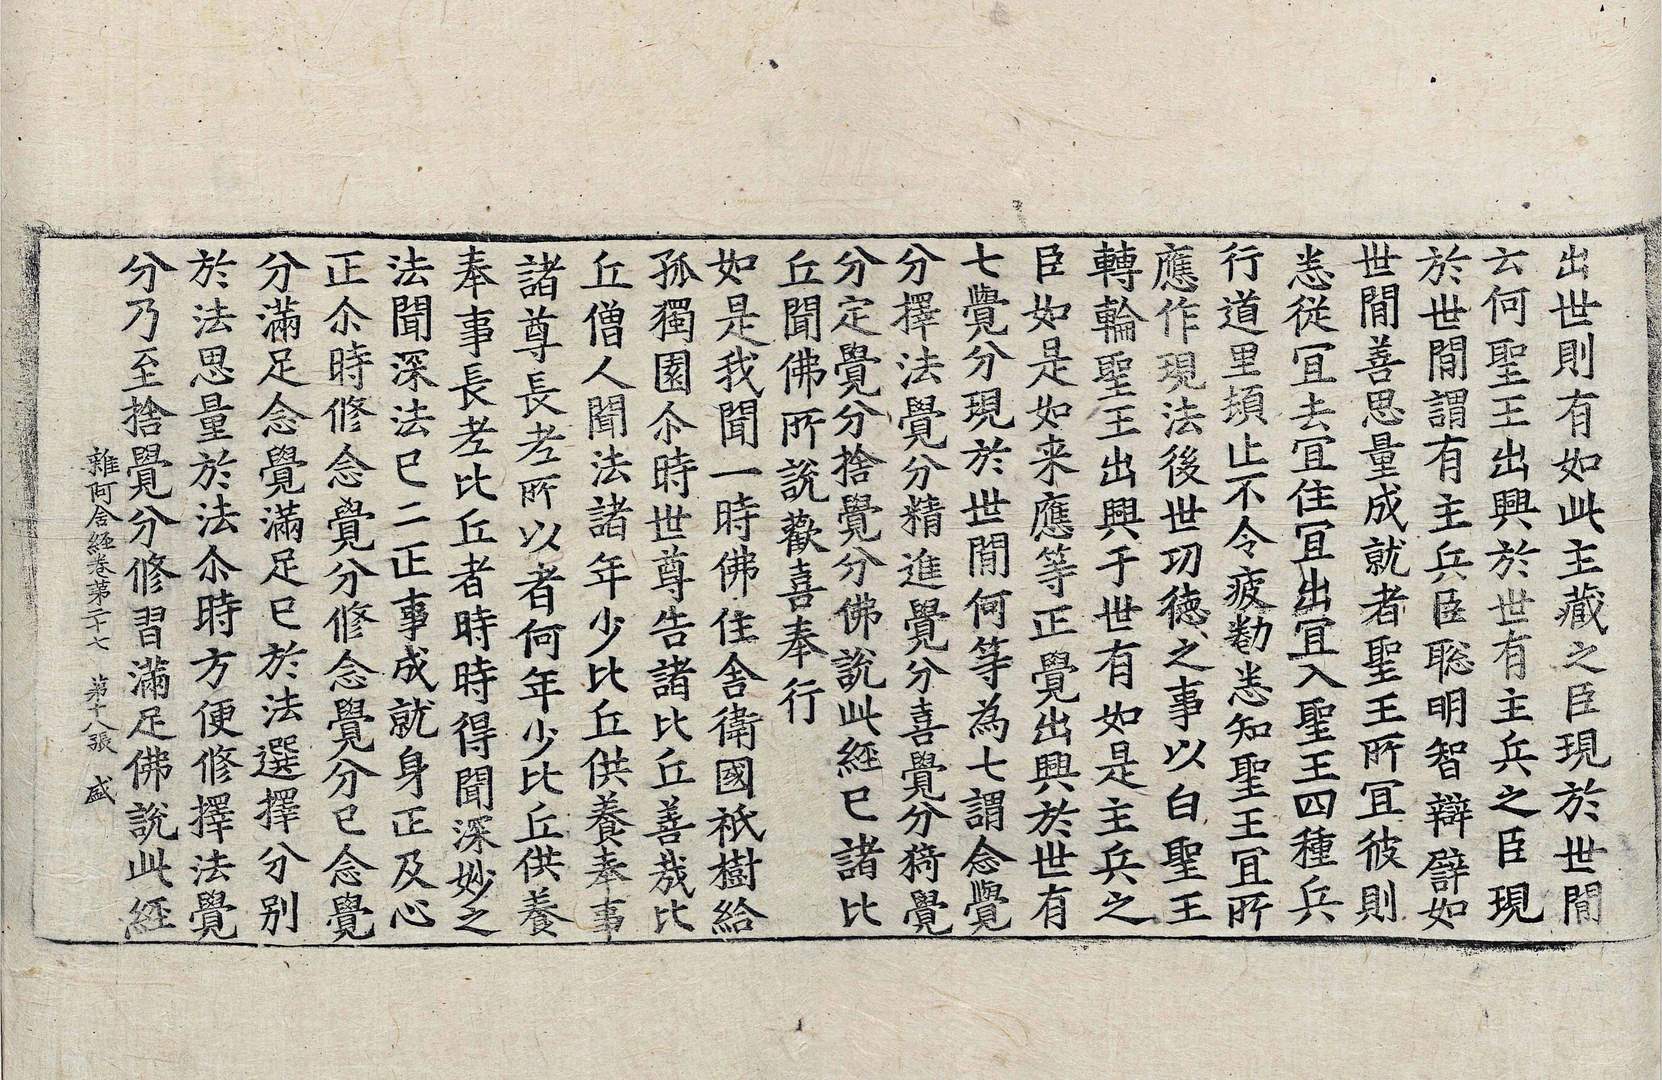 出世則有如此主藏之臣現於世間
云何聖王出興於世有主兵之臣現
於世間謂有主兵臣聡明智辯辟如
世間善思量成就者聖王所冝彼則
悉從冝去冝住冝出冝入聖王四種兵
行道里頓止不令疲勌悉知聖王冝所
應作現法後世功徳之事以白聖王
轉輪聖王出興于世有如是主兵之
臣如是如来應等正覺出興於世有
七覺分現於世間何等為七謂念覺
分擇法覺分精進覺分喜覺分猗覺
分定覺分捨覺分佛說此經已諸比
丘聞佛所說歡喜奉行
如是我聞一時佛住舎衛國祇樹給
孤獨園尒時世尊告諸比丘善哉比
丘僧人聞法諸年少比丘供養奉事
諸尊長老所以者何年少比丘供養
奉事長老比丘者時時得聞深妙之
法聞深法已二正事成就身正及心
正尒時修念覺分修念覺分已念覺
分滿足念覺滿足已於法選擇分別
於法思量於法尒時方便修擇法覺
分乃至捨覺分修習滿足佛說此經
雜阿含經卷第二十七 第十八張 盛